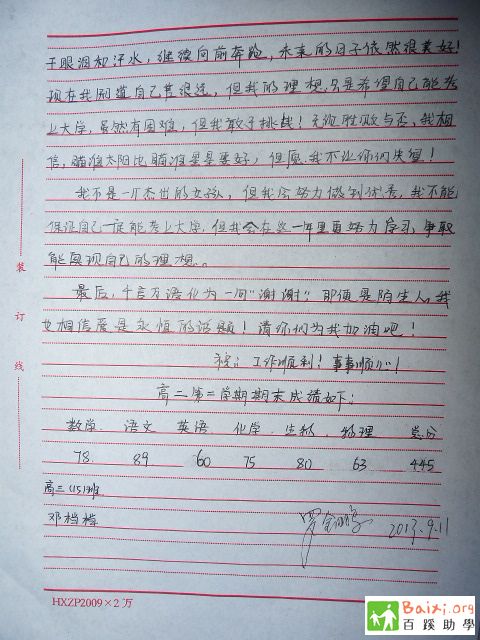 干眼泪和汗水，继续向前奔跑，未来的日子依然很美好！
现在我知道自己其很远，但我的理想只是希望自己能考
上大学，虽然有困难，但我敢于挑战！无论胜败与否，我相
信，瞄准太阳比瞄准星星要好，但愿我不让你们失望！
我不是一个杰出的女孩，但我会努力做到优秀，我不能
保证自己一定能考上大学，但我会在这一年里更努力学习，争取
能实现自己的理想。
最后，千言万语化为一句"谢谢"！即便是陌生人，我
也相信爱是永恒的话题！请你们为我加油吧！
祝：工作顺利！事事顺心！
高二第二学期期末成绩如下：
数学 语文 英语 化学 生物 物理 总分
78 89 60 75 80 63 445
高三（15）班
邓档档
2013.9.11
装
订
线
HXZP2009×2万
Baixi.org
百蹊助學